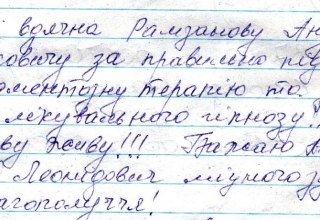 вдячна Рамзанову Ан
овичу за правильно під
оментозну терапію та
лікувального гіпнозу!
ву живу!!! Бажаю
Леонідович міцного з
лагополуччя!